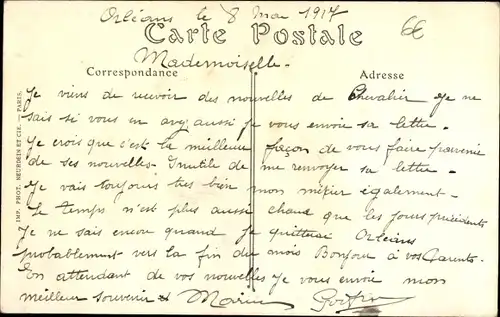 Orléans le 8 Mai 1917
6E
Carte Postale
Mademoiselle.
Correspondance
Adresse
Je viens de recevoir des nouvelles de Chevalier je ne
sais si vous en avez aussi je vous envoie sa lettre.
Je crois que c'est la meilleur façon de vous faire parvenir
de ses nouvelles. Inutile de me renvoyer sa lettre.
Je vais toujours très bien mon métier également.
Le temps n'est plus aussi chaud que les jours précédents
Je ne sais encore quand je quitterai Orléans
probablement vers la fin du mois Bonjour à vos Parents.
En attendant de vos nouvelles je vous envoie mon
meilleur souvenir
IMP. PHOT. NEURDEIN ET CIE. — PARIS.